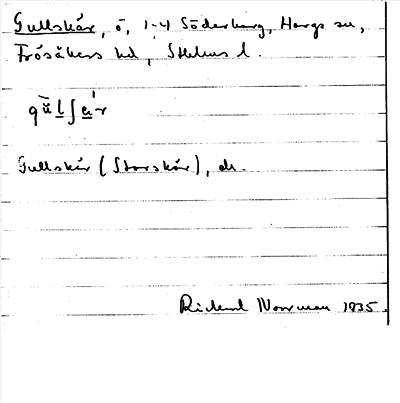 Gullskär, ö, 1-4 Söderharg, Hargs sn,
Frösåkers hd, Sthlms l.
Gullskär (Storskär), ds.
Rickard Norrman 1935.